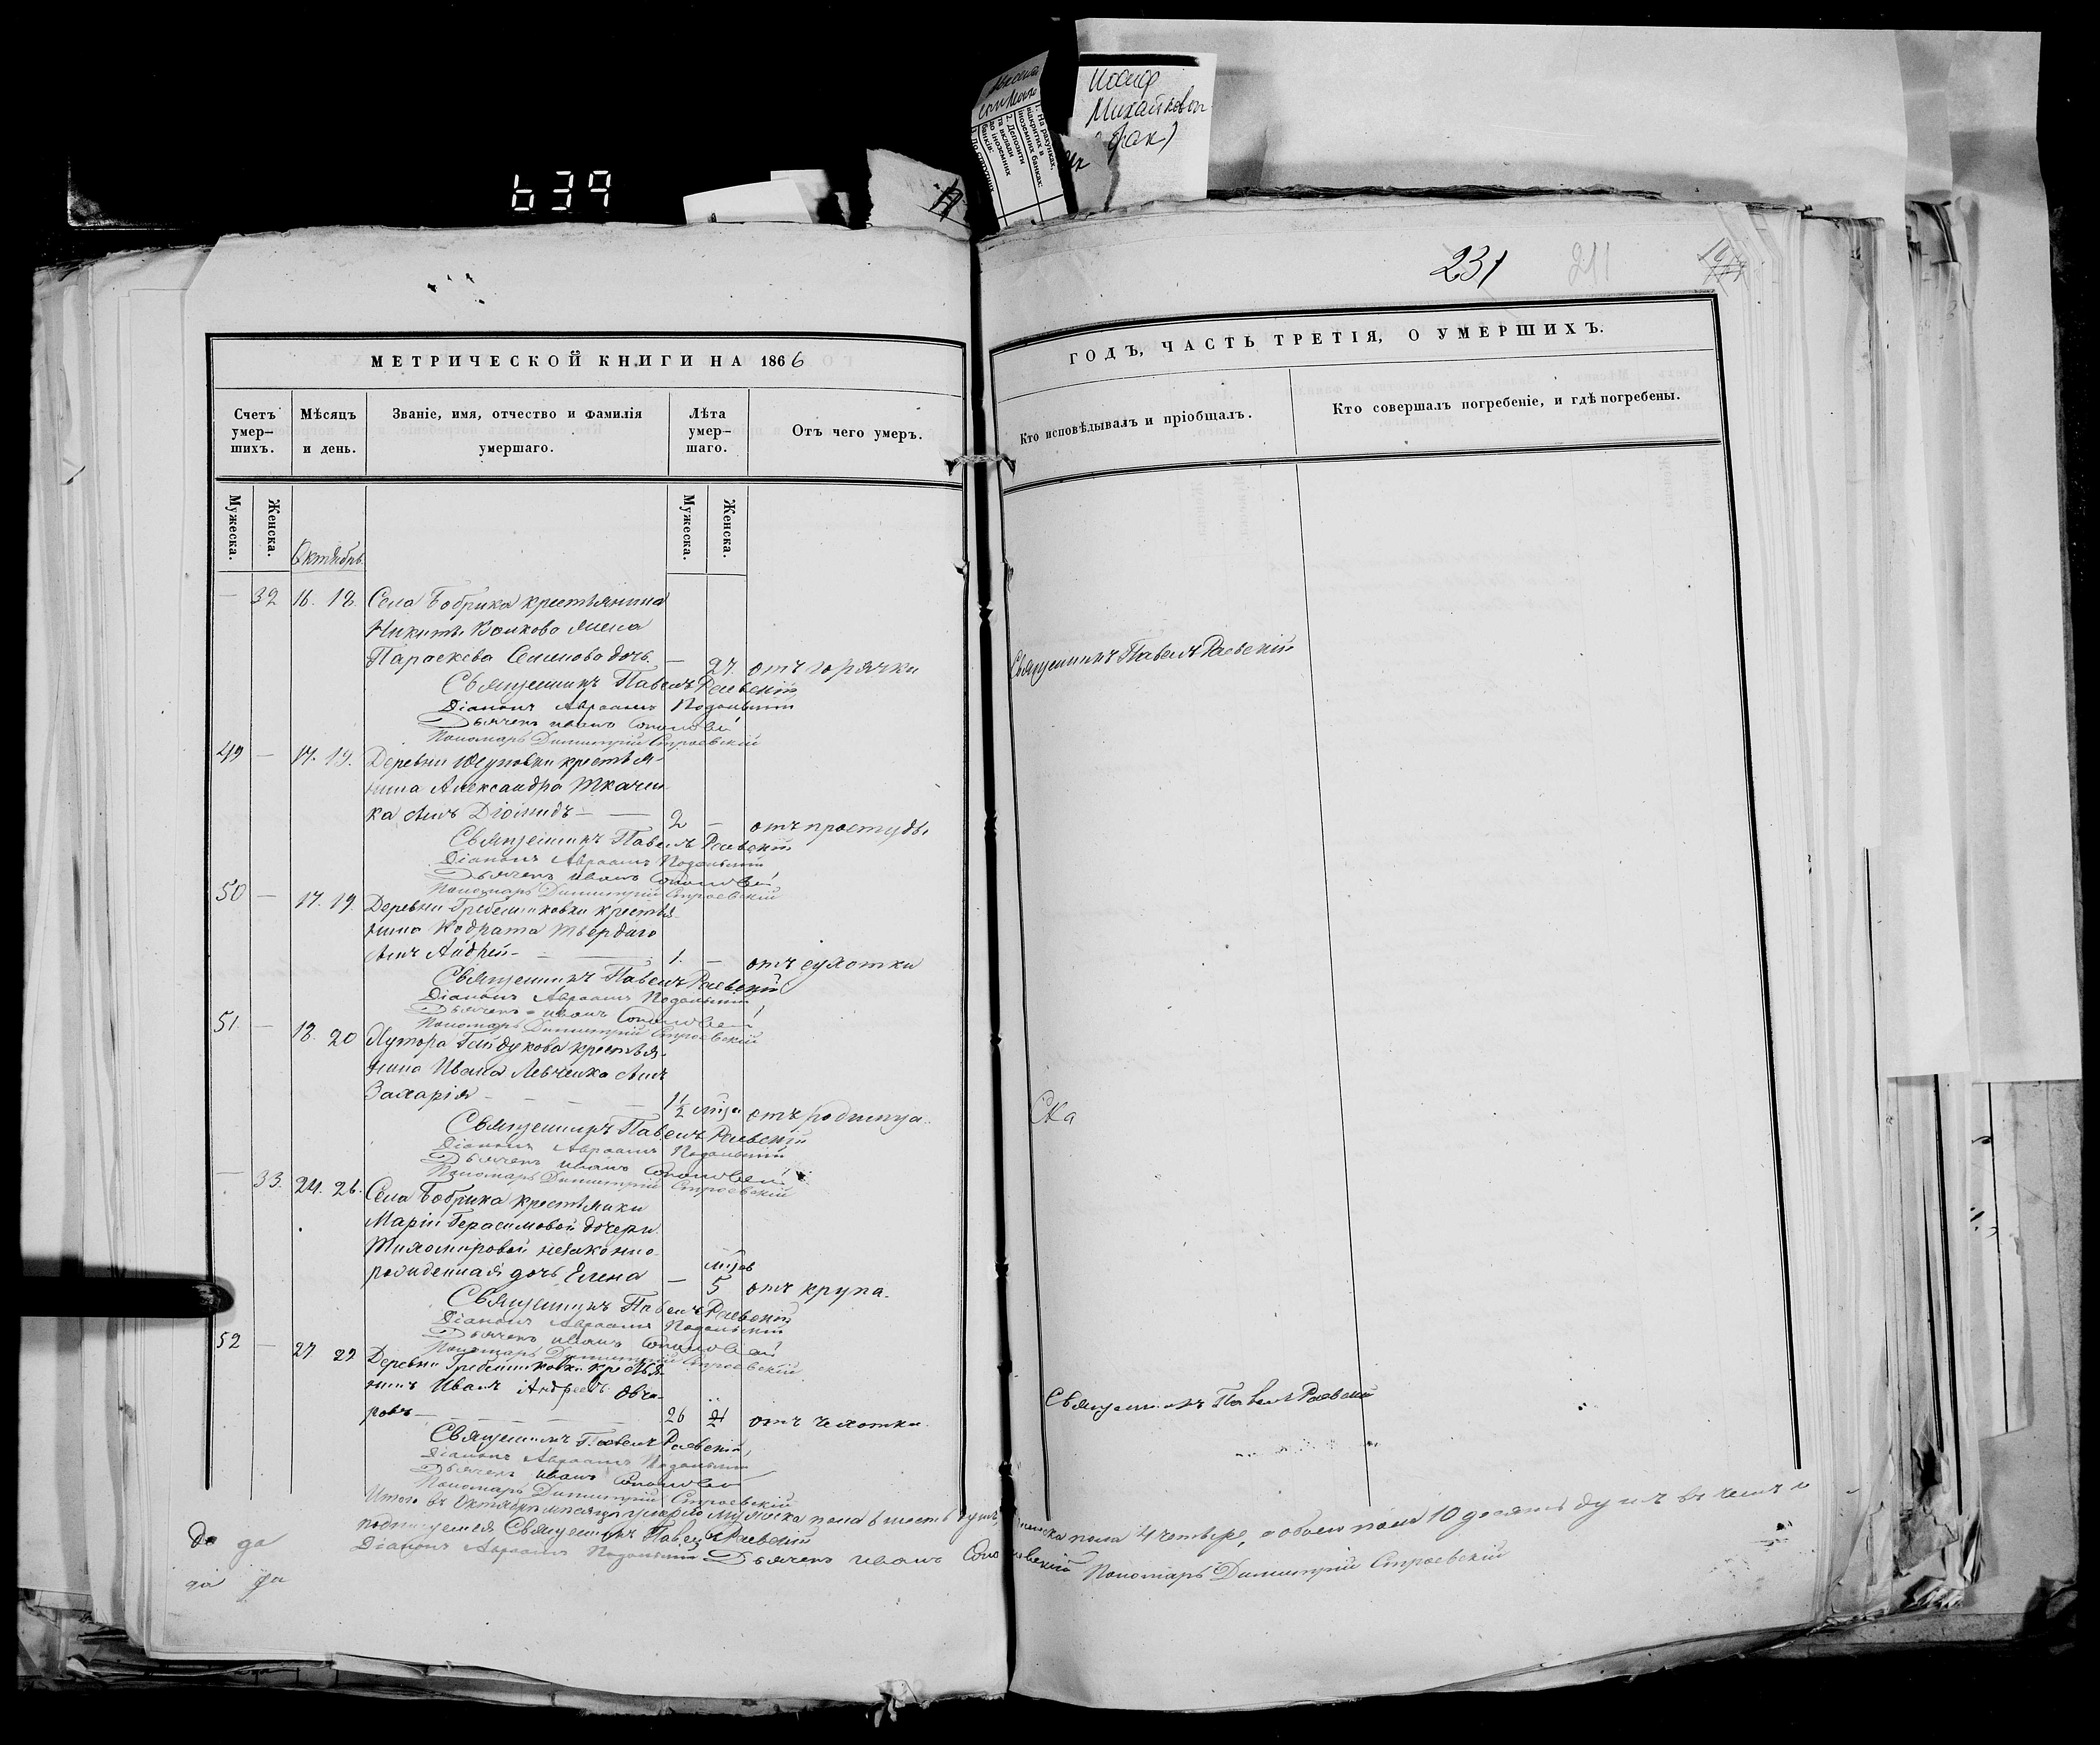 639
Иосиф
Михайлович
231
211
МЕТРИЧЕСКОЙ КНИГИ НА 1866
ГОДЪ, ЧАСТЬ ТРЕТІЯ, О УМЕРШИХЪ.
Счетъ умер-шихъ.
Мѣсяцъ и день.
Званіе, имя, отчество и фамилія умершаго.
Лѣта умер-шаго.
Отъ чего умеръ.
Кто исповѣдывалъ и пріобщалъ.
Кто совершалъ погребеніе, и гдѣ погребены.
Мужеска.
Женска.
Мужеска.
Женска.
Октябрь
— 32 16. 18. Села Бобрика крестьянина
Никиты Волкова жена
Параскева Семенова дочь. — 27. отъ горячки
Священникъ Павелъ Раевскій
Священникъ Павелъ Раевскій
Діаконъ Авраамъ Подольскій
Дьячекъ Иванъ
Пономарь Димитрій Строевскій
49 — 17. 19. Деревни крестья-
нина Александра Ткачен-
ка сынъ Діомидъ — 2 — отъ простуды
Священникъ Павелъ Раевскій
Діаконъ Авраамъ Подольскій
Дьячекъ Иванъ
Пономарь Димитрій Строевскій
50 — 17. 19. Деревни Гребенниковки крестья-
нина Кодрата Твердаго
сынъ Андрей — 1. — отъ сухотки
Священникъ Павелъ Раевскій
Діаконъ Авраамъ Подольскій
Дьячекъ Иванъ
Пономарь Димитрій Строевскій
51. — 18. 20 Хутора Гайдукова крестья-
нина Ивана Левченка сынъ
Захарія — 1½ отъ родимца.
Священникъ Павелъ Раевскій
Діаконъ Авраамъ Подольскій
Дьячекъ Иванъ
Пономарь Димитрій Строевскій
— 33. 24. 26. Села Бобрика крестьянки
Маріи Герасимовой дочери
Тихомировой незаконно-
рожденная дочь Елена — 5 отъ крупа.
Священникъ Павелъ Раевскій
Діаконъ Авраамъ Подольскій
Дьячекъ Иванъ
Пономарь Димитрій Строевскій
52 — 27 29 Деревни Гребенниковки крестья-
нинъ Иванъ Андреевъ Овча-
ровъ — 26 отъ чахотки.
Священникъ Павелъ Раевскій
Священникъ Павелъ Раевскій
Діаконъ Авраамъ Подольскій
Дьячекъ Иванъ
Пономарь Димитрій Строевскій
Итого въ Октябрѣ мѣсяцѣ умерло мужеска пола 6 шесть душъ, женска пола 4 четыре, а обоего пола 10 десять душъ въ чемъ и
подписуемся Священникъ Павелъ Раевскій
Діаконъ Авраамъ Подольскій Дьячекъ Иванъ Пономарь Димитрій Строевскій
да да
да да